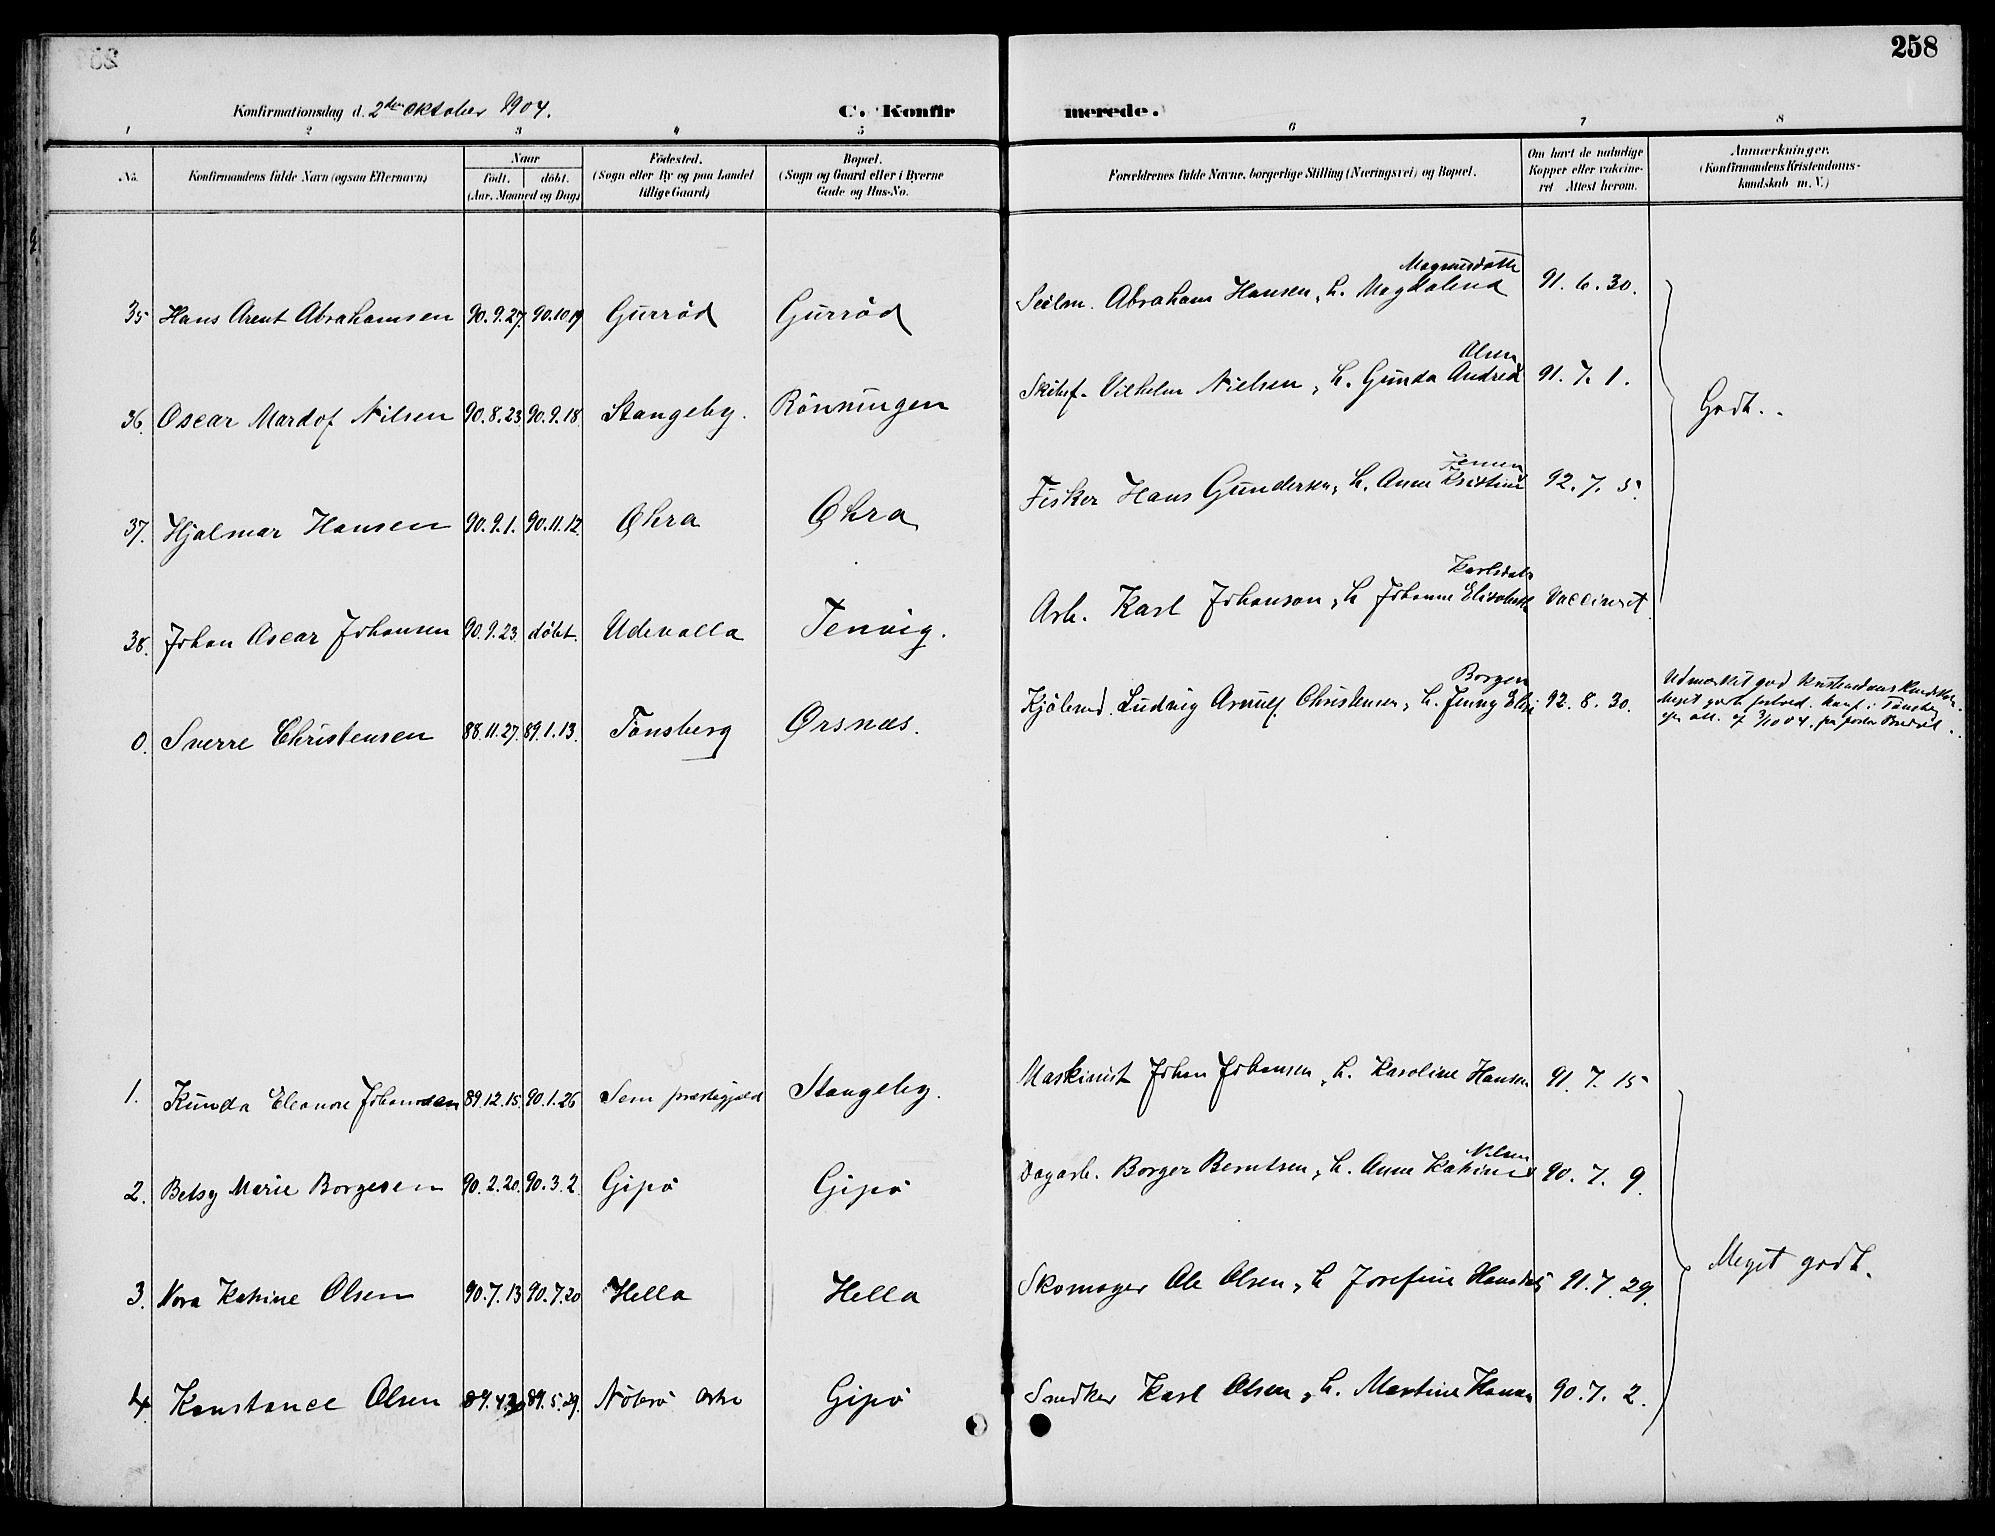 258
Konfirmationsdag d. 2den Oktober 1904. C. Konfirmerede.
1 2 3 4 5 6 7 8
No. Konfirmandens fulde Navn (ogsaa Efternavn) Naar født. døbt. (Aar, Maaned og Dag) Fødested. (Sogn eller By og paa Landet tillige Gaard) Bopæl. (Sogn og Gaard eller i Byerne Gade og Hus-No. Forældrenes fulde Navne, borgerlige Stilling (Næringsvei) og Bopæl. Om havt de naturlige Kopper eller vakcineret Attest herom. Anmærkninger. (Konfirmandens Kristendomskundskab m. V.)
35 Hans Arent Abrahamsen 90.9.27. 90.10.19 Gurrød Gurrød Seilm. Abraham Hansen, h. Magdalena Magnusdatter 91.6.30.
36. Oscar Mardof Nilsen 90.8.23 90.9.18. Stangeby. Rønningen Skibsf. Vilhelm Nielsen, h. Gunda Andrea Olsen 91.7.1. Godt.
37. Hjalmar Hansen 90.9.1. 90.11.12. Ohra Ohra Fisker Hans Gundersen, h. Anne Kristine Jensen 92.7.5.
38. Johan Oscar Johansen 90.9.23. døbt. Udevalla Tenvig. Arb. Karl Johanson, h. Johanne Elisabeth Karlsdatr Vaccineret
0. Sverre Christensen 88.11.27. 89.1.13. Tønsberg Ørsnæs. Kjøbmd. Ludvig Arnulf Christensen, h. Jenny Elise Borgen 92.8.30. Udmærket god Kristendoms Kundskab.
Meget godt forhold. Konf. i Tønsberg
1. Kunda Eleonore Johannsen 89.12.15. 90.1.26 Sem præstegjæld Stangeby. Maskinist Johan Johansen, h. Karoline Hansen 91.7.15
2. Betsy Marie Borgesen 90.2.20. 90.3.2. Gipø Gipø Dagarb. Borger Berntsen, h. Anne Katrine Nilsen 90.7.9.
3. Nora Katrine Olsen 90.7.13 90.7.20 Hella Hella Skomager Ole Olsen, h. Josefine Hansdtr 91.7.29. Meget godt.
4. Konstance Olsen 89.4.20 89.5.29. Nøterø Gipø Snedker Karl Olsen, h. Martine Hansen 90.7.2.